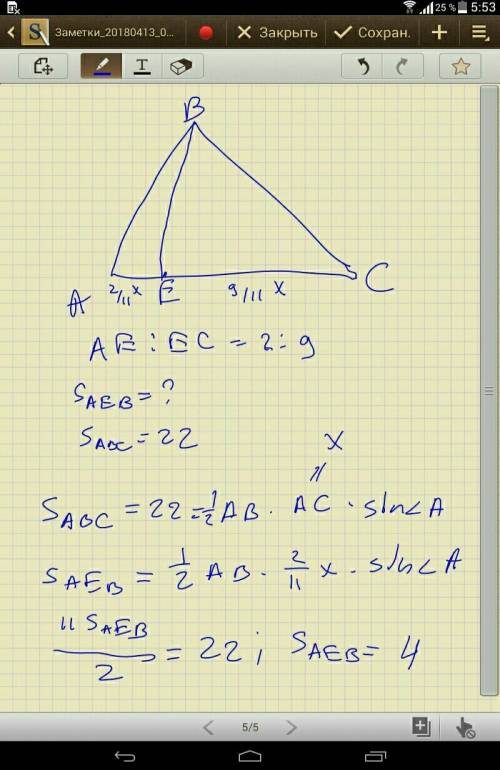 25 % 5:53
Заметки_20180413_0... Закрыть Сохран.
B
A 2/11 x E 9/11 x C
AE : EC = 2 : 9
S_AEB = ?
S_ABC = 22
x
||
S_ABC = 22 = 1/2 AB · AC · sin∠A
S_AEB = 1/2 AB · 2/11 x · sin∠A
11 S_AEB / 2 = 22 ; S_AEB = 4
5/5